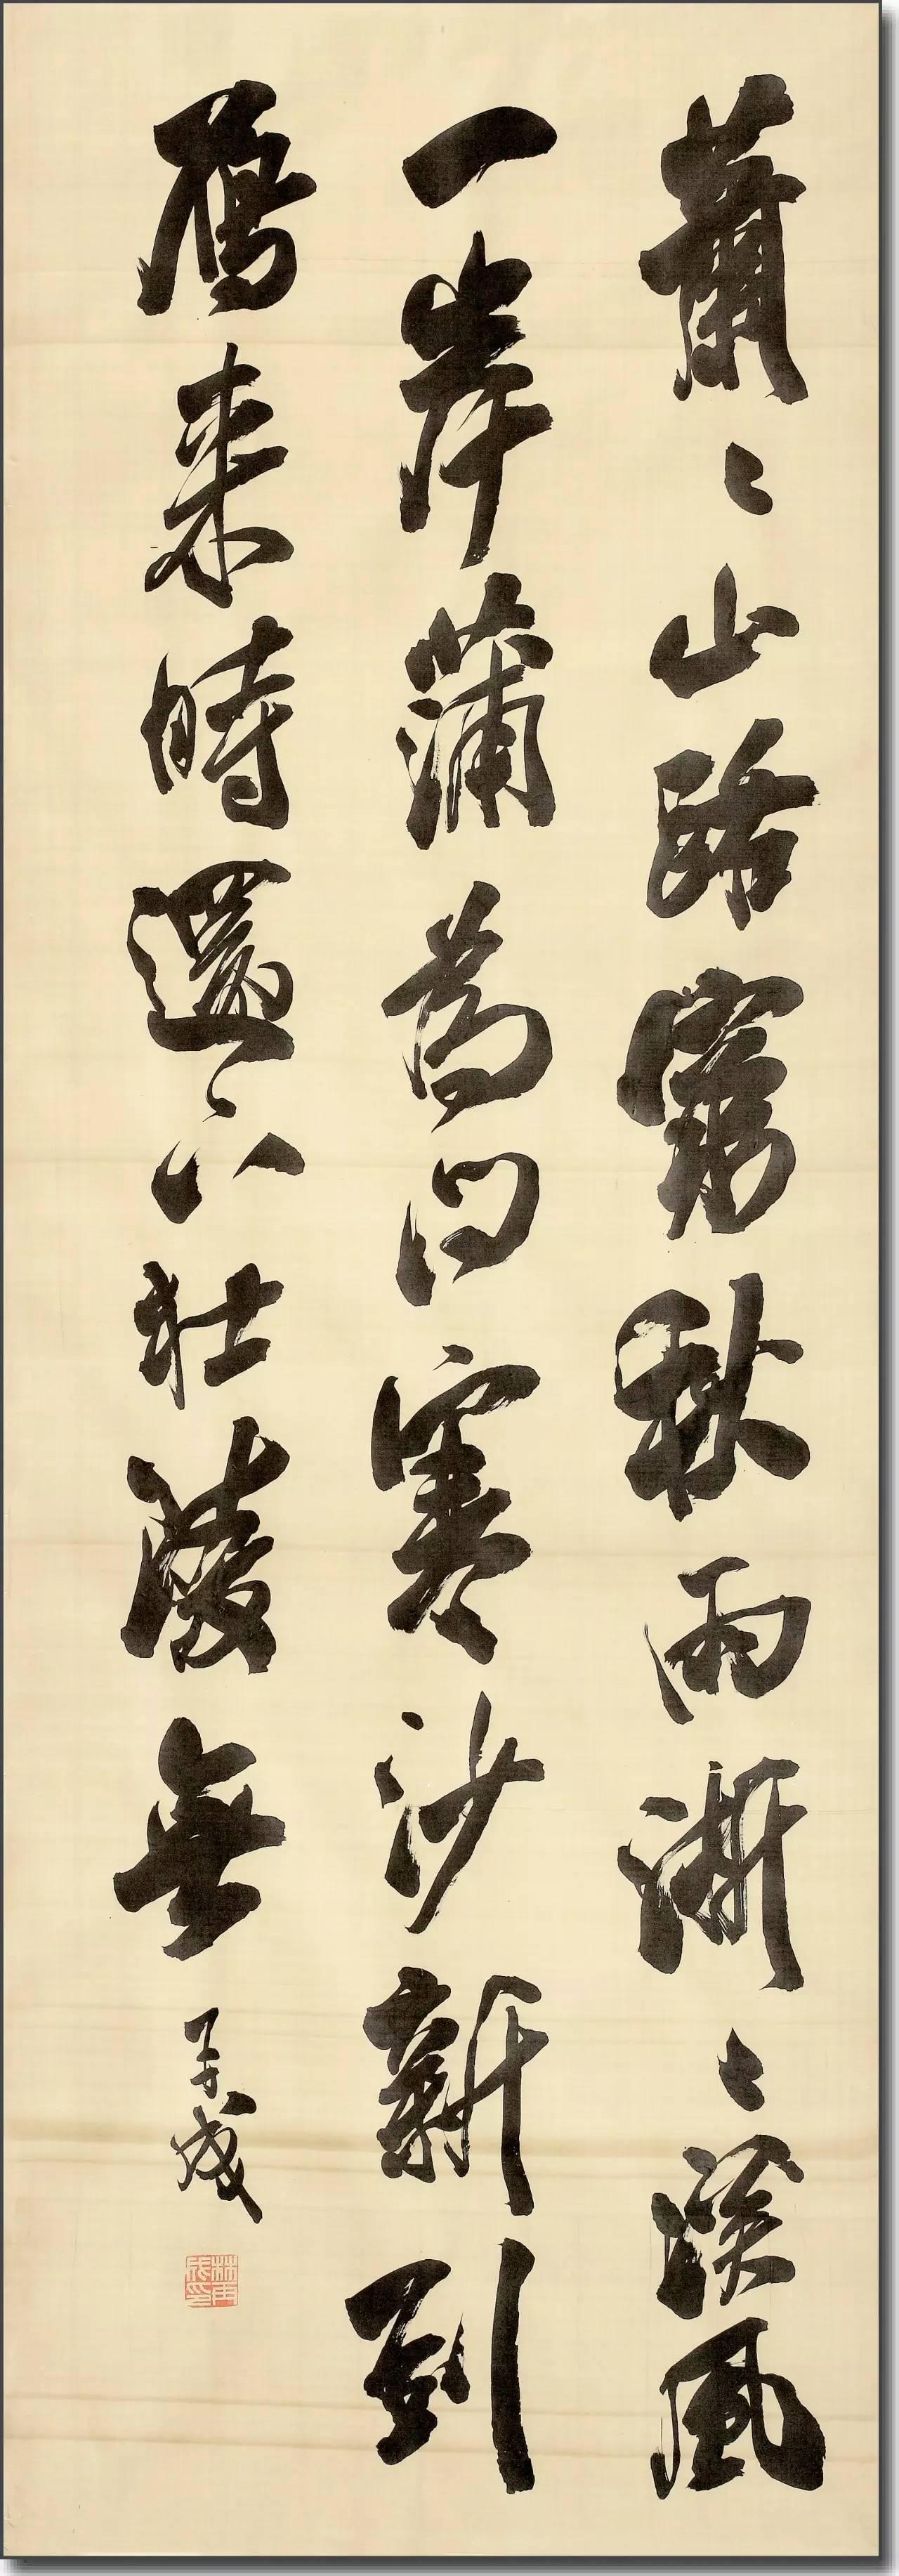 蕭〻山路窮秋雨淅〻溪風
一岸蒲為問寒沙新到
鴈来時還下杜陵無
子成